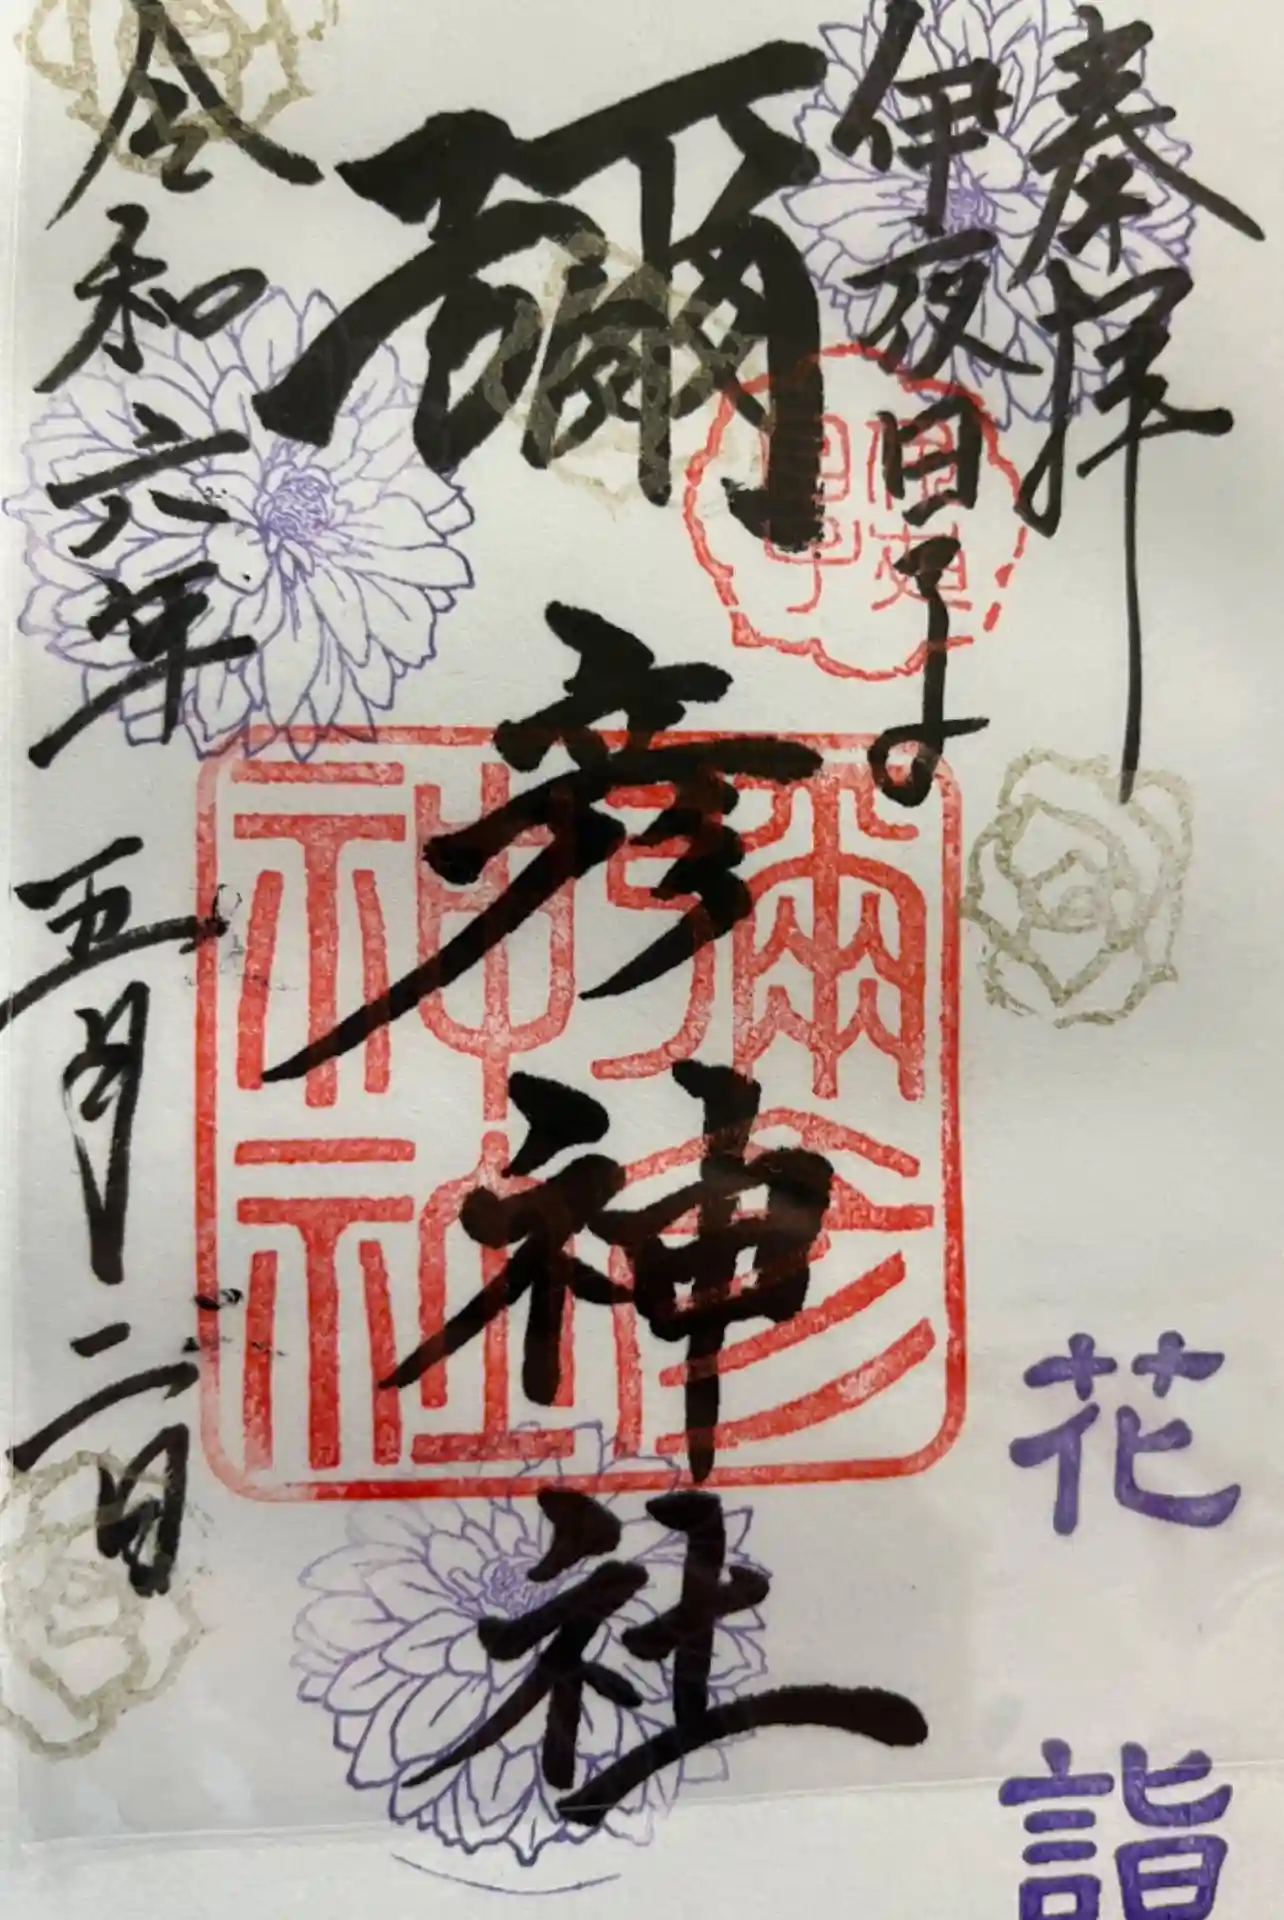 奉拝
伊夜日子
彌彦神社
彌彦
神社
令和六年五月二日
花詣